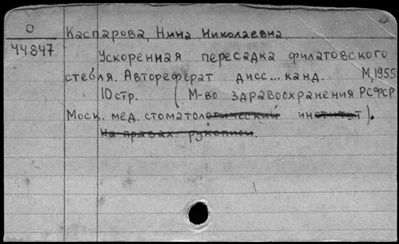 О
44847
Каспарова, Нина Николаевна.
Ускоренная пересадка филатовского
стебля. Автореферат дисс... канд. М, 1955
10 стр. (М-во здравоохранения РСФСР
Моск. мед. стоматологический институт).
На правах рукописи.